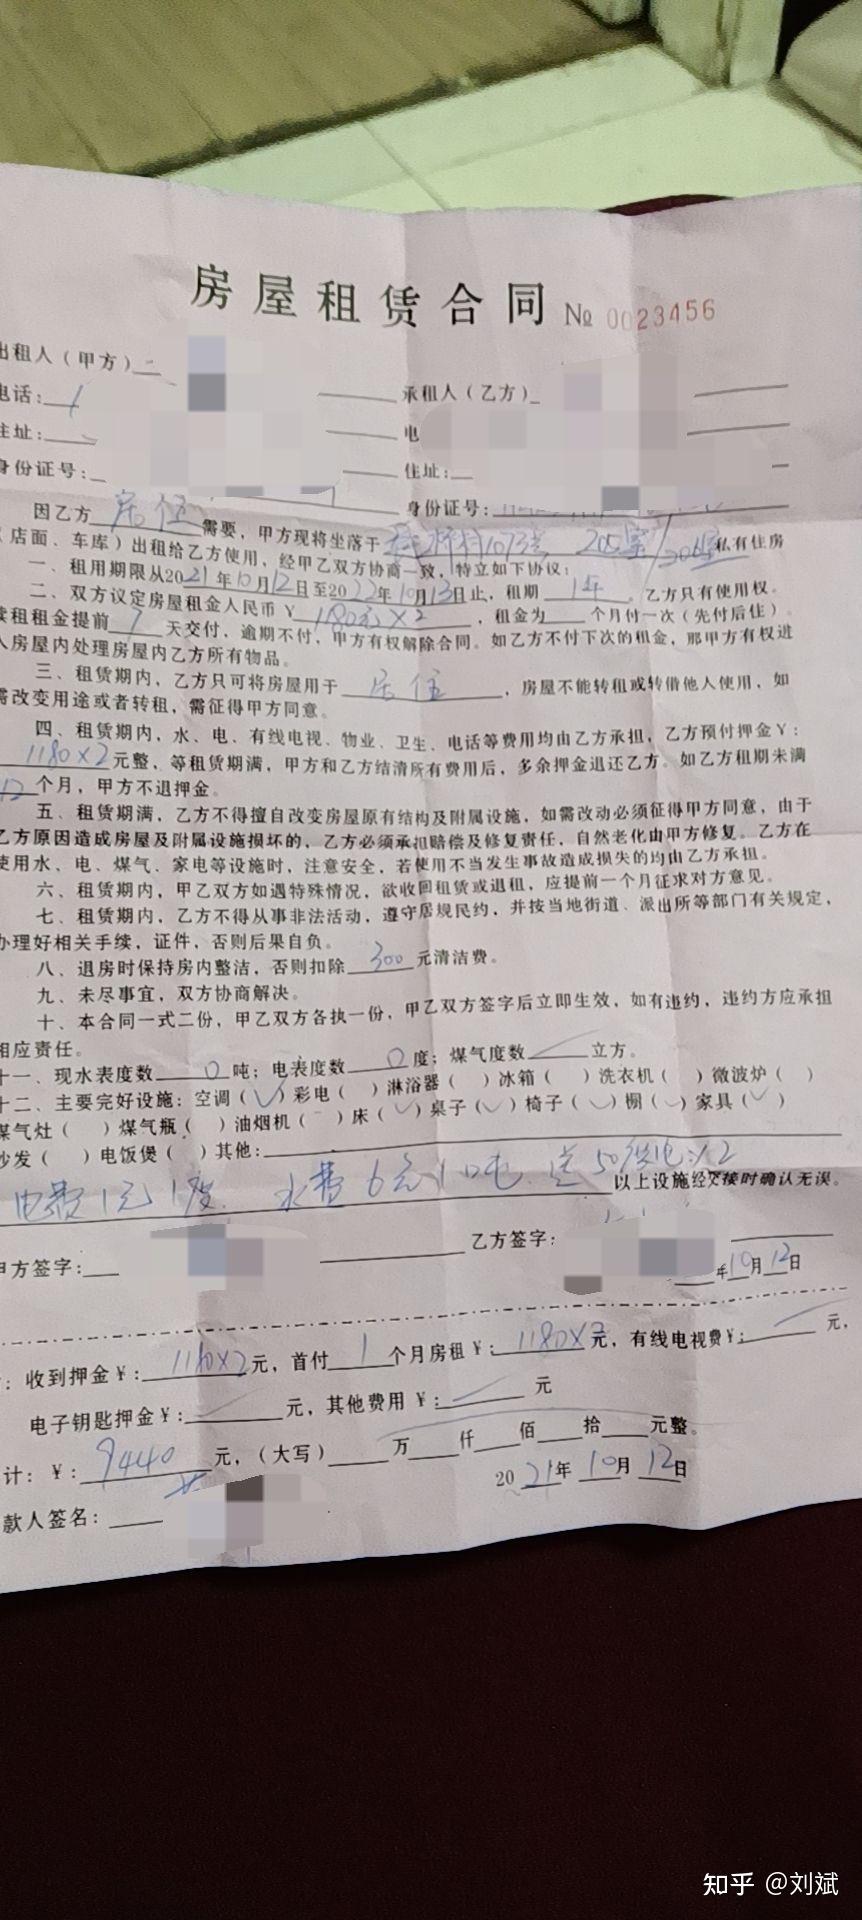 房屋租赁合同 № 0023456
出租人（甲方）
电话：
承租人（乙方）
住址：
电
身份证号：
住址：
身份证号：
因乙方 居住 需要，甲方现将坐落于 桥村1073号 205室/206室 私有住房
（店面、车库）出租给乙方使用，经甲乙双方协商一致，特立如下协议：
一、租用期限从2021年10月12日至2022年10月13日止，租期 1年 。乙方只有使用权。
二、双方议定房屋租金人民币￥ 1180元×2 ，租金为 个月付一次（先付后住）。
续租租金提前 7 天交付，逾期不付，甲方有权解除合同。如乙方不付下次的租金，那甲方有权进
入房屋内处理房屋内乙方所有物品。
三、租赁期内，乙方只可将房屋用于 居住 ，房屋不能转租或转借他人使用，如
需改变用途或者转租，需征得甲方同意。
四、租赁期内，水、电、有线电视、物业、卫生、电话等费用均由乙方承担，乙方预付押金￥：
1180×2 元整、等租赁期满，甲方和乙方结清所有费用后，多余押金退还乙方。如乙方租期未满
12 个月，甲方不退押金。
五、租赁期满，乙方不得擅自改变房屋原有结构及附属设施，如需改动必须征得甲方同意，由于
乙方原因造成房屋及附属设施损坏的，乙方必须承担赔偿及修复责任，自然老化由甲方修复。乙方在
使用水、电、煤气、家电等设施时，注意安全，若使用不当发生事故造成损失的均由乙方承担。
六、租赁期内，甲乙双方如遇特殊情况，欲收回租赁或退租，应提前一个月征求对方意见。
七、租赁期内，乙方不得从事非法活动，遵守居规民约，并按当地街道、派出所等部门有关规定，
办理好相关手续，证件，否则后果自负。
八、退房时保持房内整洁，否则扣除 300 元清洁费。
九、未尽事宜，双方协商解决。
十、本合同一式二份，甲乙双方各执一份，甲乙双方签字后立即生效，如有违约，违约方应承担
相应责任。
十一、现水表度数 0 吨；电表度数 0 度；煤气度数 立方。
十二、主要完好设施：空调（✓）彩电（ ）淋浴器（ ）冰箱（ ）洗衣机（ ）微波炉（ ）
煤气灶（ ）煤气瓶（ ）油烟机（ ）床（✓）桌子（✓）椅子（✓）橱（✓）家具（✓）
沙发（ ）电饭煲（ ）其他：
电费1元1度 水费6元1吨 送50度电×2
以上设施经交接时确认无误。
甲方签字：
乙方签字：
年10月12日
：收到押金￥： 1180×2 元，首付 1 个月房租￥： 1180×2 元，有线电视费￥： 元，
电子钥匙押金￥： 元，其他费用￥： 元
计：￥： 9440 元，（大写） 万 仟 佰 拾 元整。
2021年10月12日
款人签名：
知乎 @刘斌